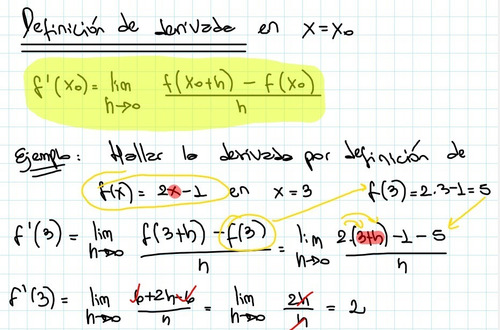 Definición de derivada en x=x₀
f'(x₀) = lim h→0 (f(x₀+h) − f(x₀))/h
Ejemplo: Hallar la derivada por definición de
f(x) = 2x−1 en x=3 f(3)=2·3−1=5
f'(3) = lim h→0 (f(3+h) − f(3))/h = lim h→0 (2·(3+h)−1−5)/h
f'(3) = lim h→0 (6+2h−6)/h = lim h→0 2h/h = 2